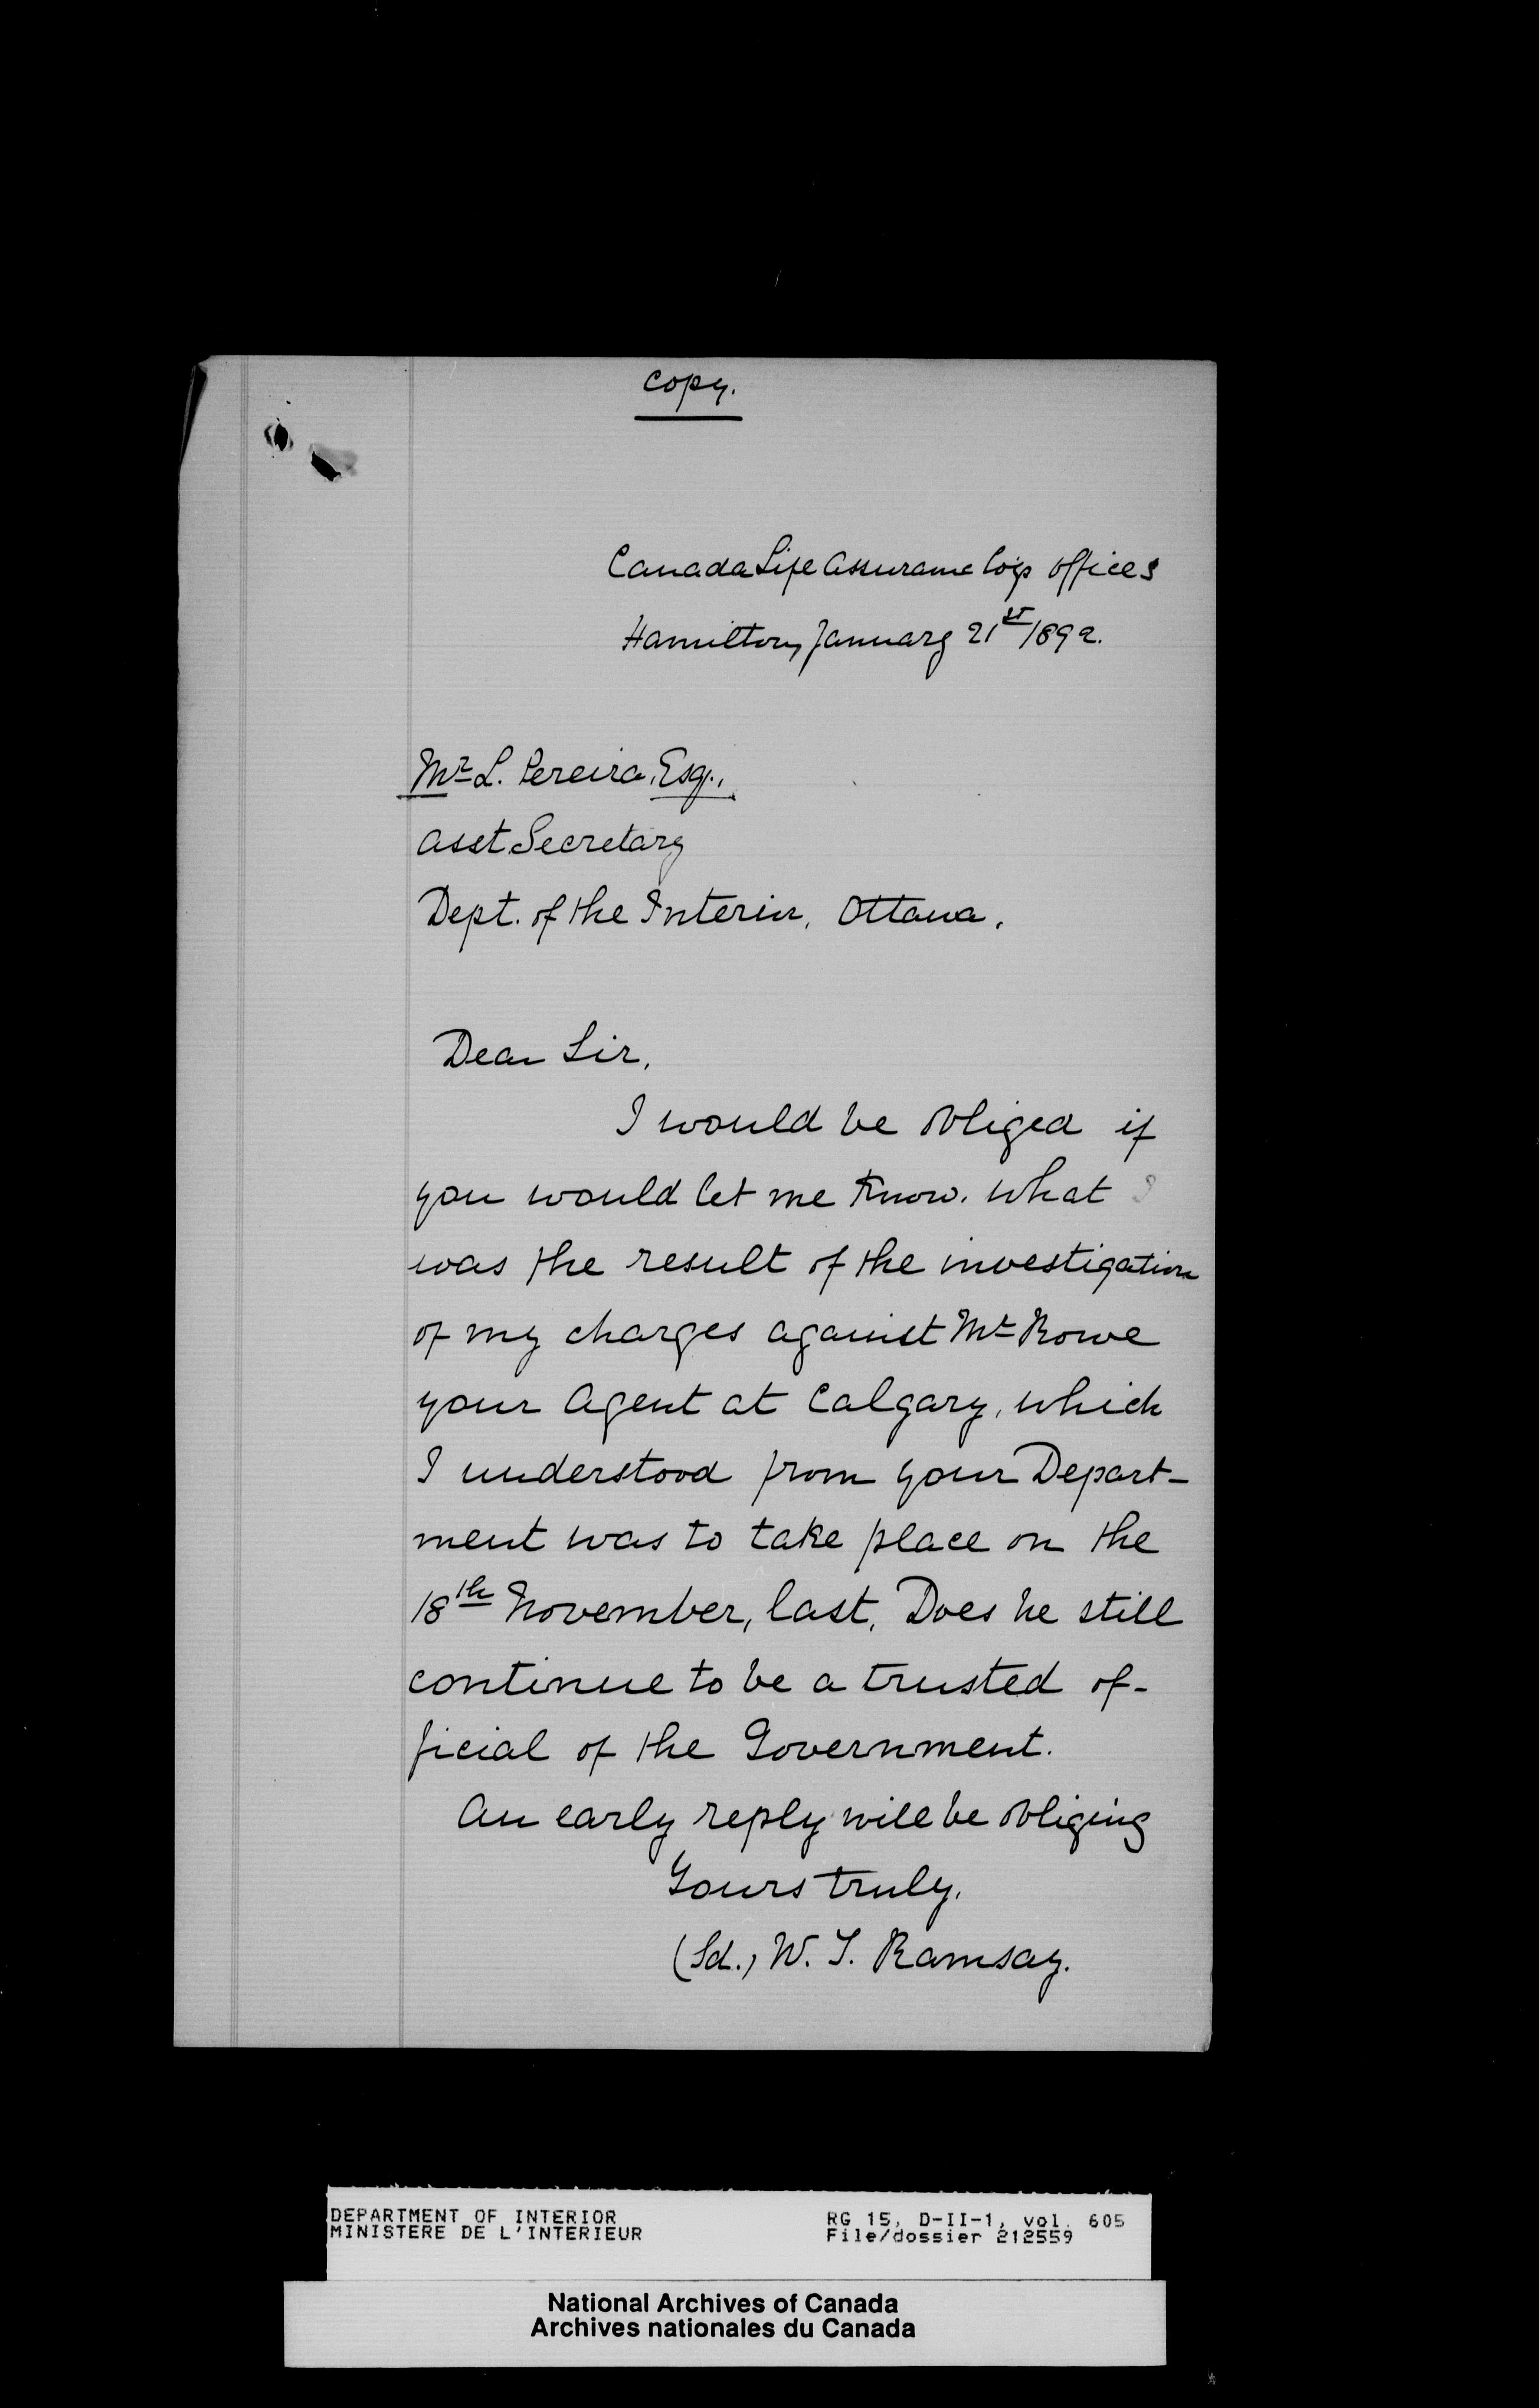 copy.
Canada Life Assurance Co's offices
Hamilton, January 21st/1892.
Mr L. Pereira, Esq.,
Asst Secretary
Dept. of the Interior, Ottawa.
Dear Sir,
I would be obliged if
you would let me know. what
was the result of the investigation
of my charges against Mr Rowe
your Agent at Calgary, which
I understood from your Depart-
ment was to take place on the
18th November, last. Does he still
continue to be a trusted of-
ficial of the Government.
An early reply will be obliging
Yours truly,
(Sd.) W. T. Ramsay.
DEPARTMENT OF INTERIOR RG 15, D-II-1, vol. 605
MINISTERE DE L'INTERIEUR File/dossier 212559
National Archives of Canada
Archives nationales du Canada